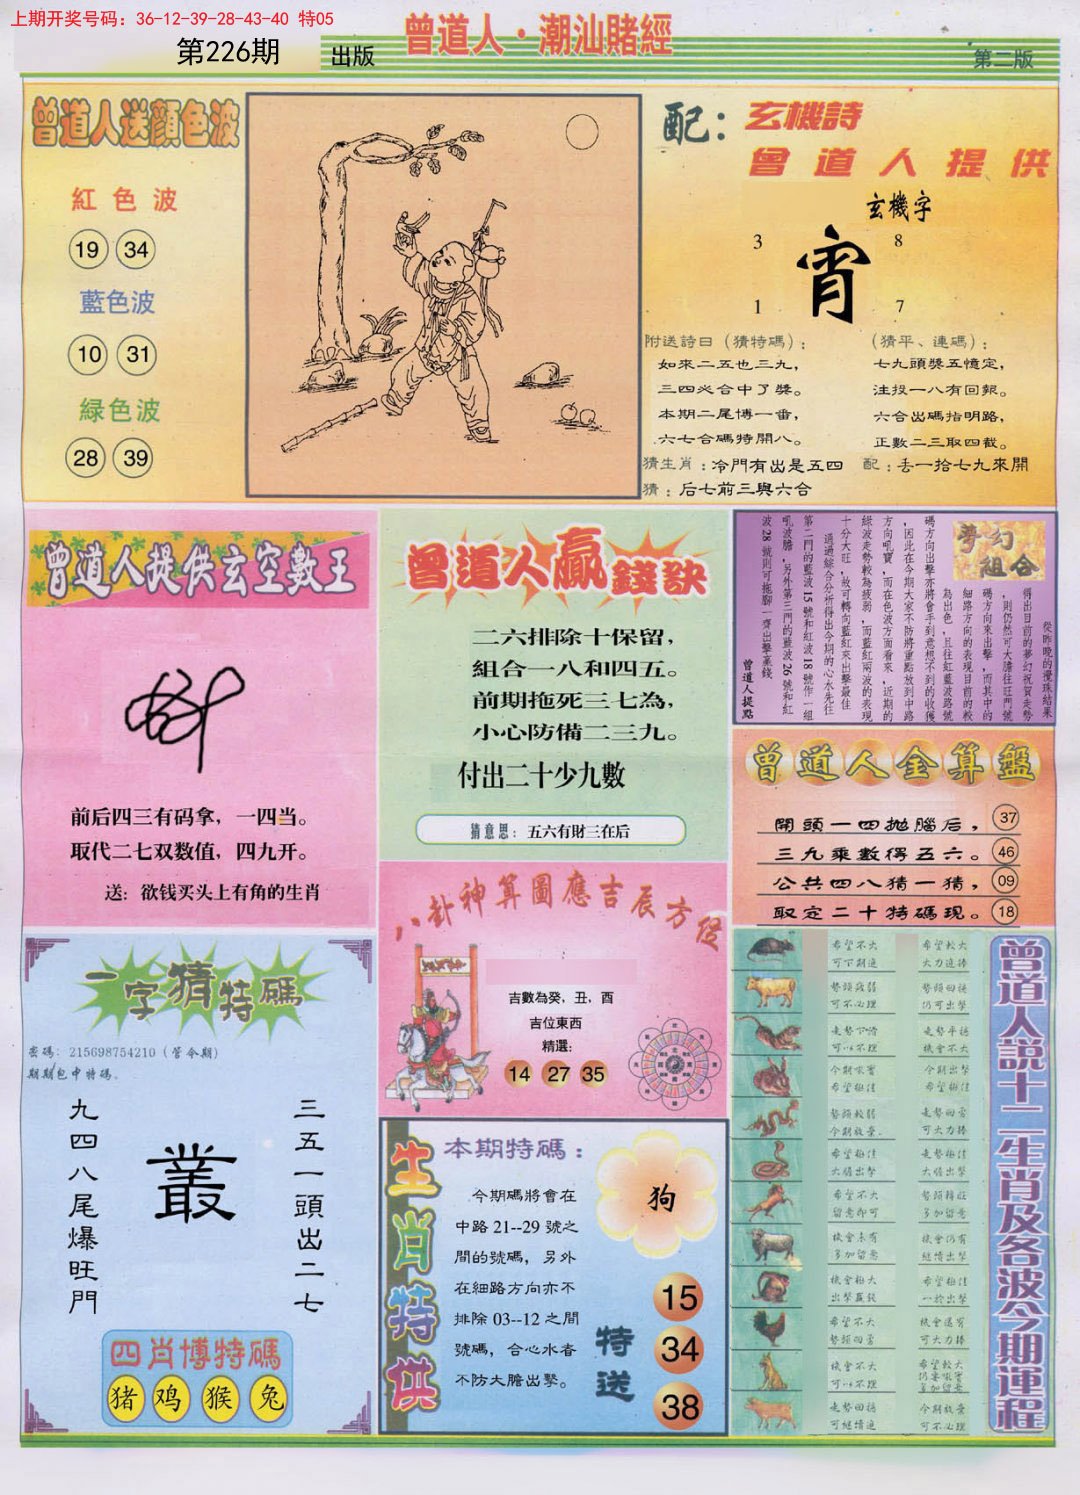 上期开奖号码：36-12-39-28-43-40 特05
第226期 出版
曾道人·潮汕賭經
第二版
曾道人送顔色波
紅色波
19 34
藍色波
10 31
緑色波
28 39
配：玄機詩
曾道人提供
玄機字
3 8
宵
1 7
附送詩曰（猜特碼）：
如來二五也三九，
三四必合中了獎。
本期二尾博一番，
六七合碼特開八。
（猜平、連碼）：
七九頭獎五憶定，
注投一八有回報。
六合出碼指明路，
正數二三取四截。
猜生肖：冷門有出是五四
配：丢一拾七九來開
猜：后七前三與六合
曾道人提供玄空數王
前后四三有码拿，一四当。
取代二七双数值，四九开。
送：欲钱买头上有角的生肖
曾道人贏錢訣
二六排除十保留，
組合一八和四五。
前期拖死三七為，
小心防備二三九。
付出二十少九數
猜意思：五六有財三在后
夢幻組合
從昨晚的攪珠結果
得出目前的夢幻祝賀走勢
，則仍然可大膽往旺門號
碼方向來出擊，而其中的
細路方向的表現目前的較
為出色，且往紅藍波路號
碼方向出擊亦將會手到意想不到的收獲
，因此在今期大家不防將重點放到中路
方向吼寶，而在色波方面看來，近期的
緑波走勢較為疲弱，而藍紅兩波的表現
十分大旺，故可轉向藍紅來出擊最佳
。通過綜合分析得出今期的心水先往
第二門的藍波15號和紅波18號作一組
吼波膽，另外第三門的藍波26號和紅
波28號則可拖腳一齊出擊贏錢
曾道人提點
曾道人金算盤
開頭一四拋腦后， 37
三九乘數得五六。 46
公共四八猜一猜， 09
取定二十特碼現。 18
八卦神算圖應吉辰方位
吉數為癸，丑，酉
吉位東西
精選：
14 27 35
一字猜特碼
密碼：215698754210（管令期）
期期包中特碼。
九四八尾爆旺門
叢
三五一頭出二七
四肖博特碼
猪 鸡 猴 兔
生肖特供
本期特碼：
今期碼將會在
中路21--29號之
間的號碼，另外
在細路方向亦不
排除03--12之間
號碼，合心水者
不防大膽出擊。
狗
特送
15
34
38
曾道人說十二生肖及各波今期運程
希望不大
可下期追
希望較大
大力追捧
勢頭疲弱
可不必理
勢頭回揚
仍可出擊
走勢下滑
可以不理
走勢平揚
機會不大
今期吼實
希望極佳
今期出擊
希望極佳
勢頭較弱
今期放棄
走勢回勇
可大力捧
走勢極佳
大膽出擊
走勢極佳
大膽出擊
希望不大
留意即可
勢頭轉旺
多加留意
機會未有
多加留意
機會仍有
繼續出擊
機會極大
出擊贏錢
希望極佳
一於出擊
希望不大
勢頭回勇
機會還有
可大力捧
機會不大
可以不理
希望較大
仍要吼實
多加留意
走勢回揚
可繼續追
今期放棄
可不必理